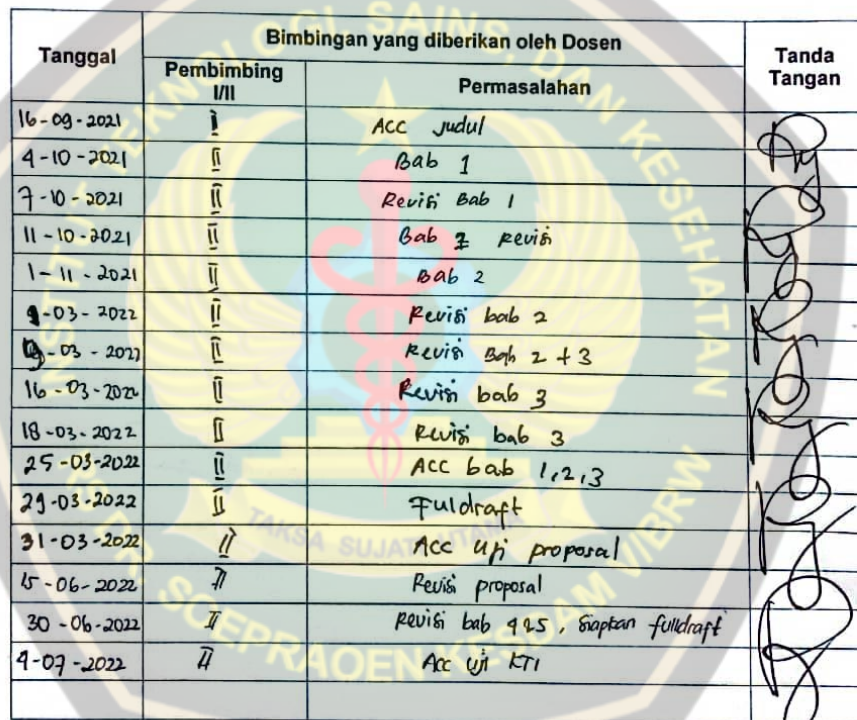 Tanggal
Bimbingan yang diberikan oleh Dosen
Tanda
Tangan
Pembimbing
I/II
Permasalahan
16-09-2021 I ACC Judul
4-10-2021 II Bab 1
7-10-2021 II Revisi Bab 1
11-10-2021 II Bab Revisi
1-11-2021 II Bab 2
-03-2022 II Revisi bab 2
-03- II Revisi Bab 2 + 3
16-03-2022 II Revisi bab 3
18-03-2022 II Revisi bab 3
25-03-2022 II ACC bab 1,2,3
29-03-2022 II Fuldraft
31-03-2022 II Acc Uji proposal
15-06-2022 II Revisi proposal
30-06-2022 II Revisi bab 4 2 5, Siapkan fulldraft
4-07-2022 II Acc Uji KTI
INSTITUT TEKNOLOGI, SAINS, DAN KESEHATAN
TAKSA SUJATI UTAMA
RS DR. SOEPRAOEN KESDAM V/BRW